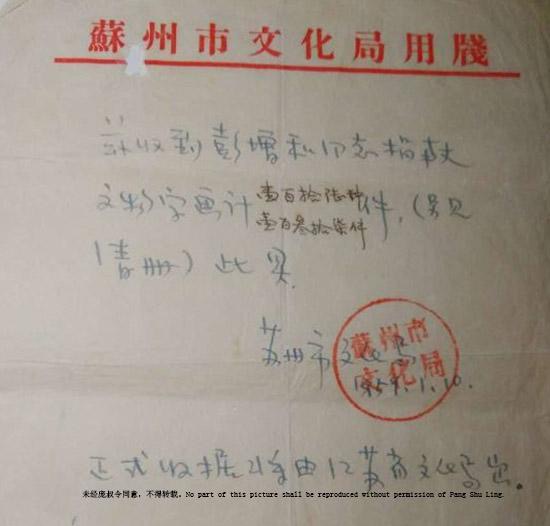 蘇州市文化局用牋
兹收到彭增和同志捐献
文物字画计壹百拾陆种
壹百叁拾柒件
件，（另见
清册）此具.
苏州市文化局
蘇州市
文化局
1959.1.10.
正式收据将由江苏省文化局出。
未经庞叔令同意，不得转载。No part of this picture shall be reproduced without permission of Pang Shu Ling.